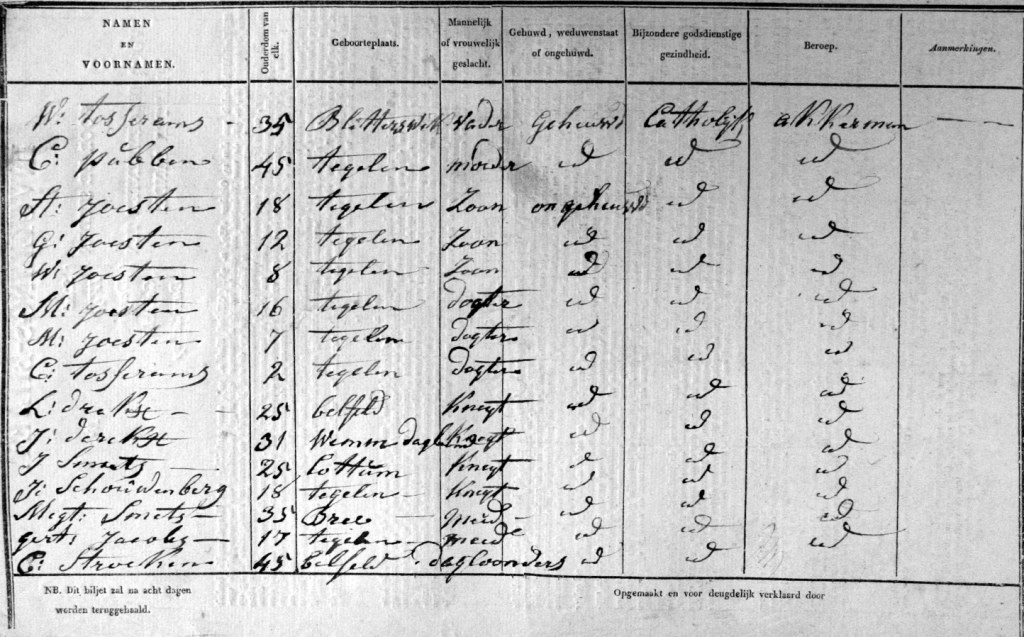 NAMEN EN VOORNAMEN. Ouderdom van elk. Geboorteplaats. Mannelijk of vrouwelijk geslacht. Gehuwd, weduwenstaat of ongehuwd. Bijzondere godsdienstige gezindheid. Beroep. Aanmerkingen.
W: tosserams - 35 Blitterswik vader Gehuwd Catholijk akkerman —
C: pubben 45 tegelen moeder id id id
H: joesten 18 tegelen Zoon ongehuwd id id
G: Joesten 12 tegelen Zoon id id id
W: joesten 8 tegelen Zoon id id id
M: joesten 16 tegelen dogter id id id
M: joesten 7 tegelen dogter id id id
C: tosserams 2 tegelen dogter id id id
L: - - 25 belfeld Knegt id id id
J: 31 Knegt id id id
J Smets — 25 Lottum Knegt id id id
J: Schouwenberg 18 tegelen - Knegt id id id
Megt: Smets — 35 Bree — meid - id id id
gert: Jacobs — 17 tegelen — meid id id id
C: Stroeken 45 belfeld dagloonders id id
NB. Dit biljet zal na acht dagen worden teruggehaald.
Opgemaakt en voor deugdelijk verklaard door